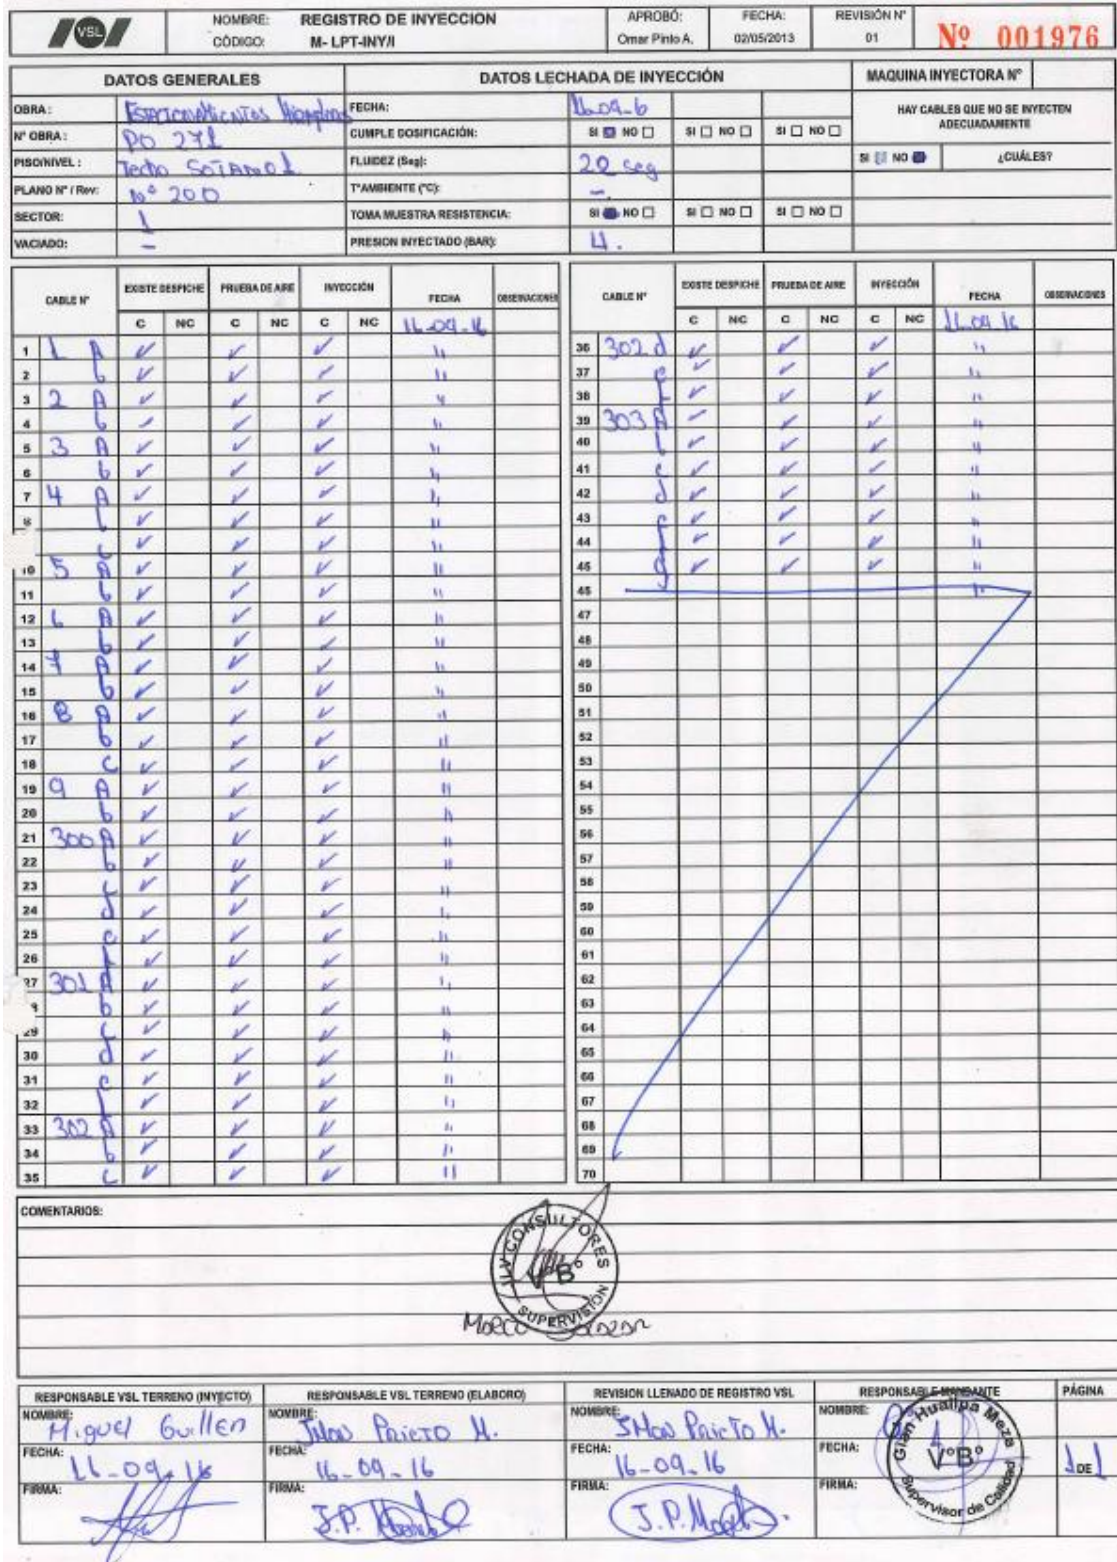 VSL
NOMBRE: REGISTRO DE INYECCION
CÓDIGO: M- LPT-INY/I
APROBÓ: Omar Pinto A.
FECHA: 02/05/2013
REVISIÓN N° 01
Nº 001976
DATOS GENERALES
OBRA: Estacionamientos
N° OBRA: PO 271
PISO/NIVEL: Techo Sotano 1
PLANO N° / Rev: N° 200
SECTOR: 1
VACIADO: -
DATOS LECHADA DE INYECCIÓN
FECHA: 16-09-6
CUMPLE DOSIFICACIÓN: SI NO SI NO SI NO
FLUIDEZ (Seg): 20 seg
T°AMBIENTE (°C): -
TOMA MUESTRA RESISTENCIA: SI NO SI NO SI NO
PRESION INYECTADO (BAR): 4.
MAQUINA INYECTORA N°
HAY CABLES QUE NO SE INYECTEN ADECUADAMENTE
SI NO ¿CUÁLES?
CABLE N° EXISTE DESPICHE PRUEBA DE AIRE INYECCIÓN FECHA OBSERVACIONES
C NC C NC C NC 16-09-16
1 1 A ✓ ✓ ✓ "
2 b ✓ ✓ ✓ "
3 2 A ✓ ✓ ✓ "
4 b ✓ ✓ ✓ "
5 3 A ✓ ✓ ✓ "
6 b ✓ ✓ ✓ "
7 4 A ✓ ✓ ✓ "
8 b ✓ ✓ ✓ "
c ✓ ✓ ✓ "
10 5 A ✓ ✓ ✓ "
11 b ✓ ✓ ✓ "
12 6 A ✓ ✓ ✓ "
13 b ✓ ✓ ✓ "
14 7 A ✓ ✓ ✓ "
15 b ✓ ✓ ✓ "
16 8 A ✓ ✓ ✓ "
17 b ✓ ✓ ✓ "
18 c ✓ ✓ ✓ "
19 9 A ✓ ✓ ✓ "
20 b ✓ ✓ ✓ "
21 300 A ✓ ✓ ✓ "
22 b ✓ ✓ ✓ "
23 c ✓ ✓ ✓ "
24 d ✓ ✓ ✓ "
25 e ✓ ✓ ✓ "
26 f ✓ ✓ ✓ "
27 301 A ✓ ✓ ✓ "
b ✓ ✓ ✓ "
29 c ✓ ✓ ✓ "
30 d ✓ ✓ ✓ "
31 e ✓ ✓ ✓ "
32 f ✓ ✓ ✓ "
33 302 A ✓ ✓ ✓ "
34 b ✓ ✓ ✓ "
35 c ✓ ✓ ✓ "
CABLE N° EXISTE DESPICHE PRUEBA DE AIRE INYECCIÓN FECHA OBSERVACIONES
C NC C NC C NC 16.09.16
36 302 d ✓ ✓ ✓ "
37 e ✓ ✓ ✓ "
38 f ✓ ✓ ✓ "
39 303 A ✓ ✓ ✓ "
40 b ✓ ✓ ✓ "
41 c ✓ ✓ ✓ "
42 d ✓ ✓ ✓ "
43 e ✓ ✓ ✓ "
44 f ✓ ✓ ✓ "
45 g ✓ ✓ ✓ "
46 "
47
48
49
50
51
52
53
54
55
56
57
58
59
60
61
62
63
64
65
66
67
68
69
70
COMENTARIOS:
CONSULTORES
V°B°
SUPERVISION
RESPONSABLE VSL TERRENO (INYECTO)
NOMBRE: Miguel Guillen
FECHA: 16-09-16
FIRMA:
RESPONSABLE VSL TERRENO (ELABORO)
NOMBRE: Jhon Prieto M.
FECHA: 16-09-16
FIRMA: J.P.
REVISION LLENADO DE REGISTRO VSL
NOMBRE: Jhon Prieto M.
FECHA: 16-09-16
FIRMA: J.P.
RESPONSABLE MANDANTE
NOMBRE:
FECHA:
FIRMA:
Gian Huallpa Meza
V°B°
Supervisor de Calidad
PÁGINA
1 DE 1